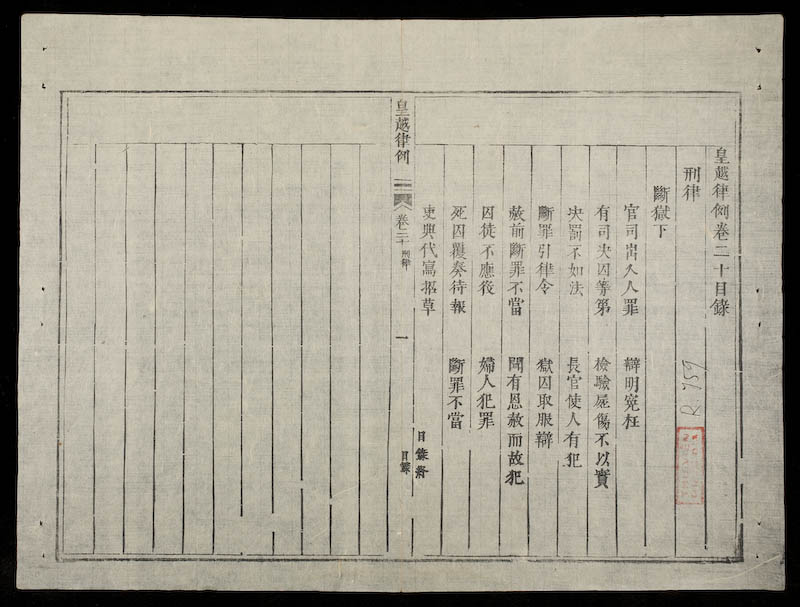 皇越律例卷二十目錄
刑律
斷獄下
官司出入人罪 辯明冤枉
有司决囚等第 檢驗屍傷不以實
决罰不如法 長官使人有犯
斷罪引律令 獄囚取服辯
赦前斷罪不當 聞有恩赦而故犯
囚徒不應役 婦人犯罪
死囚覆奏待報 斷罪不當
吏典代寫招草
目錄終
皇越律例
卷二十 刑律
一
目錄
R 759